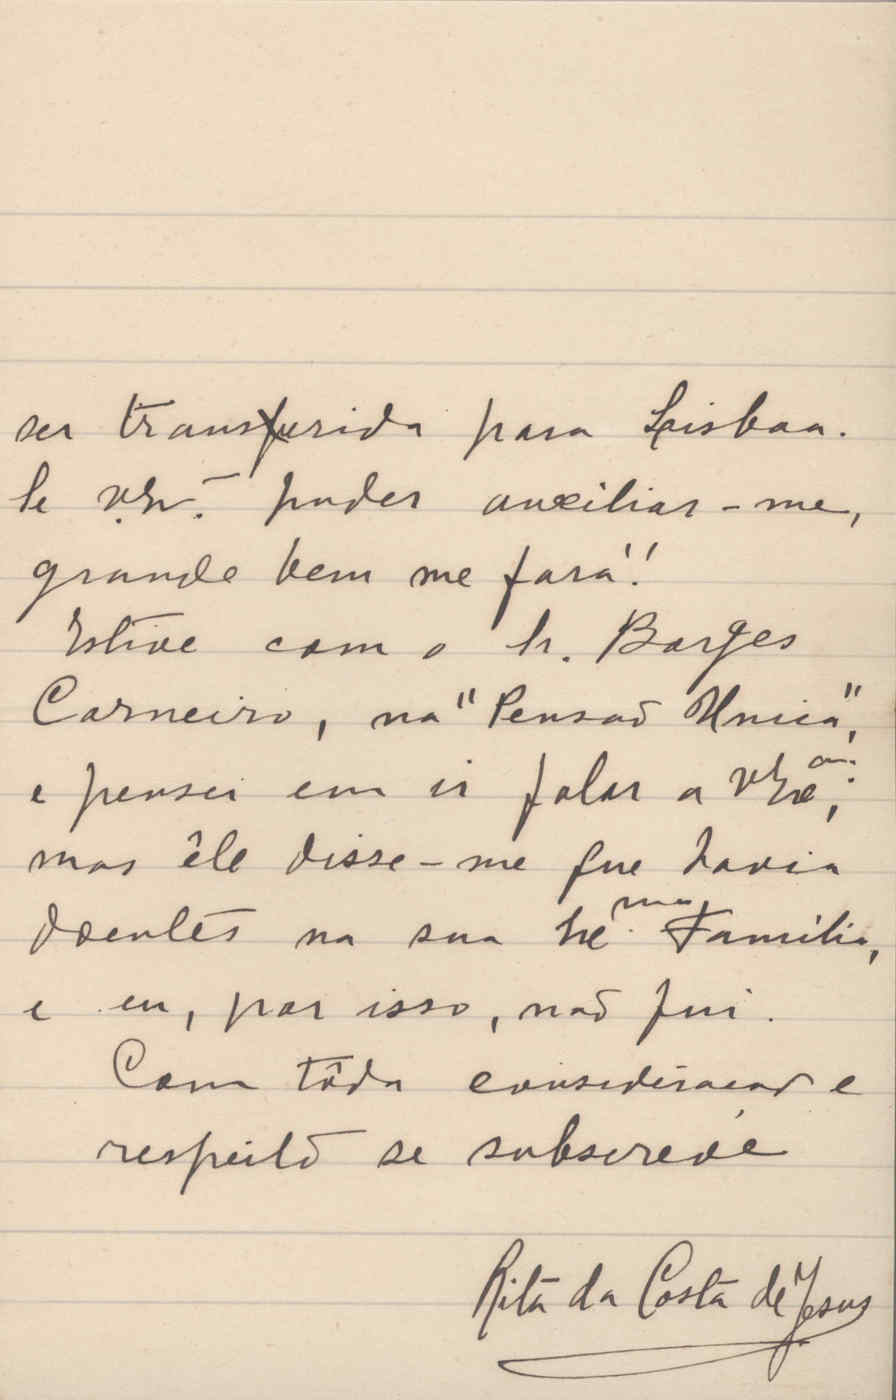 ser transferida para Lisboa.
Se V. Ex.ª puder auxiliar-me,
grande bem me fará!
Estive com o Sr. Borges
Carneiro, na "Pensaõ Unica",
e pensei em ir falar a V. Ex.ª;
mas êle disse-me que havia
doentes na sua Ex.ma Familia,
e eu, por isso, naõ fui.
Com tôda consideraçaõ e
respeito se subscreve
Rita da Costa de Jesus